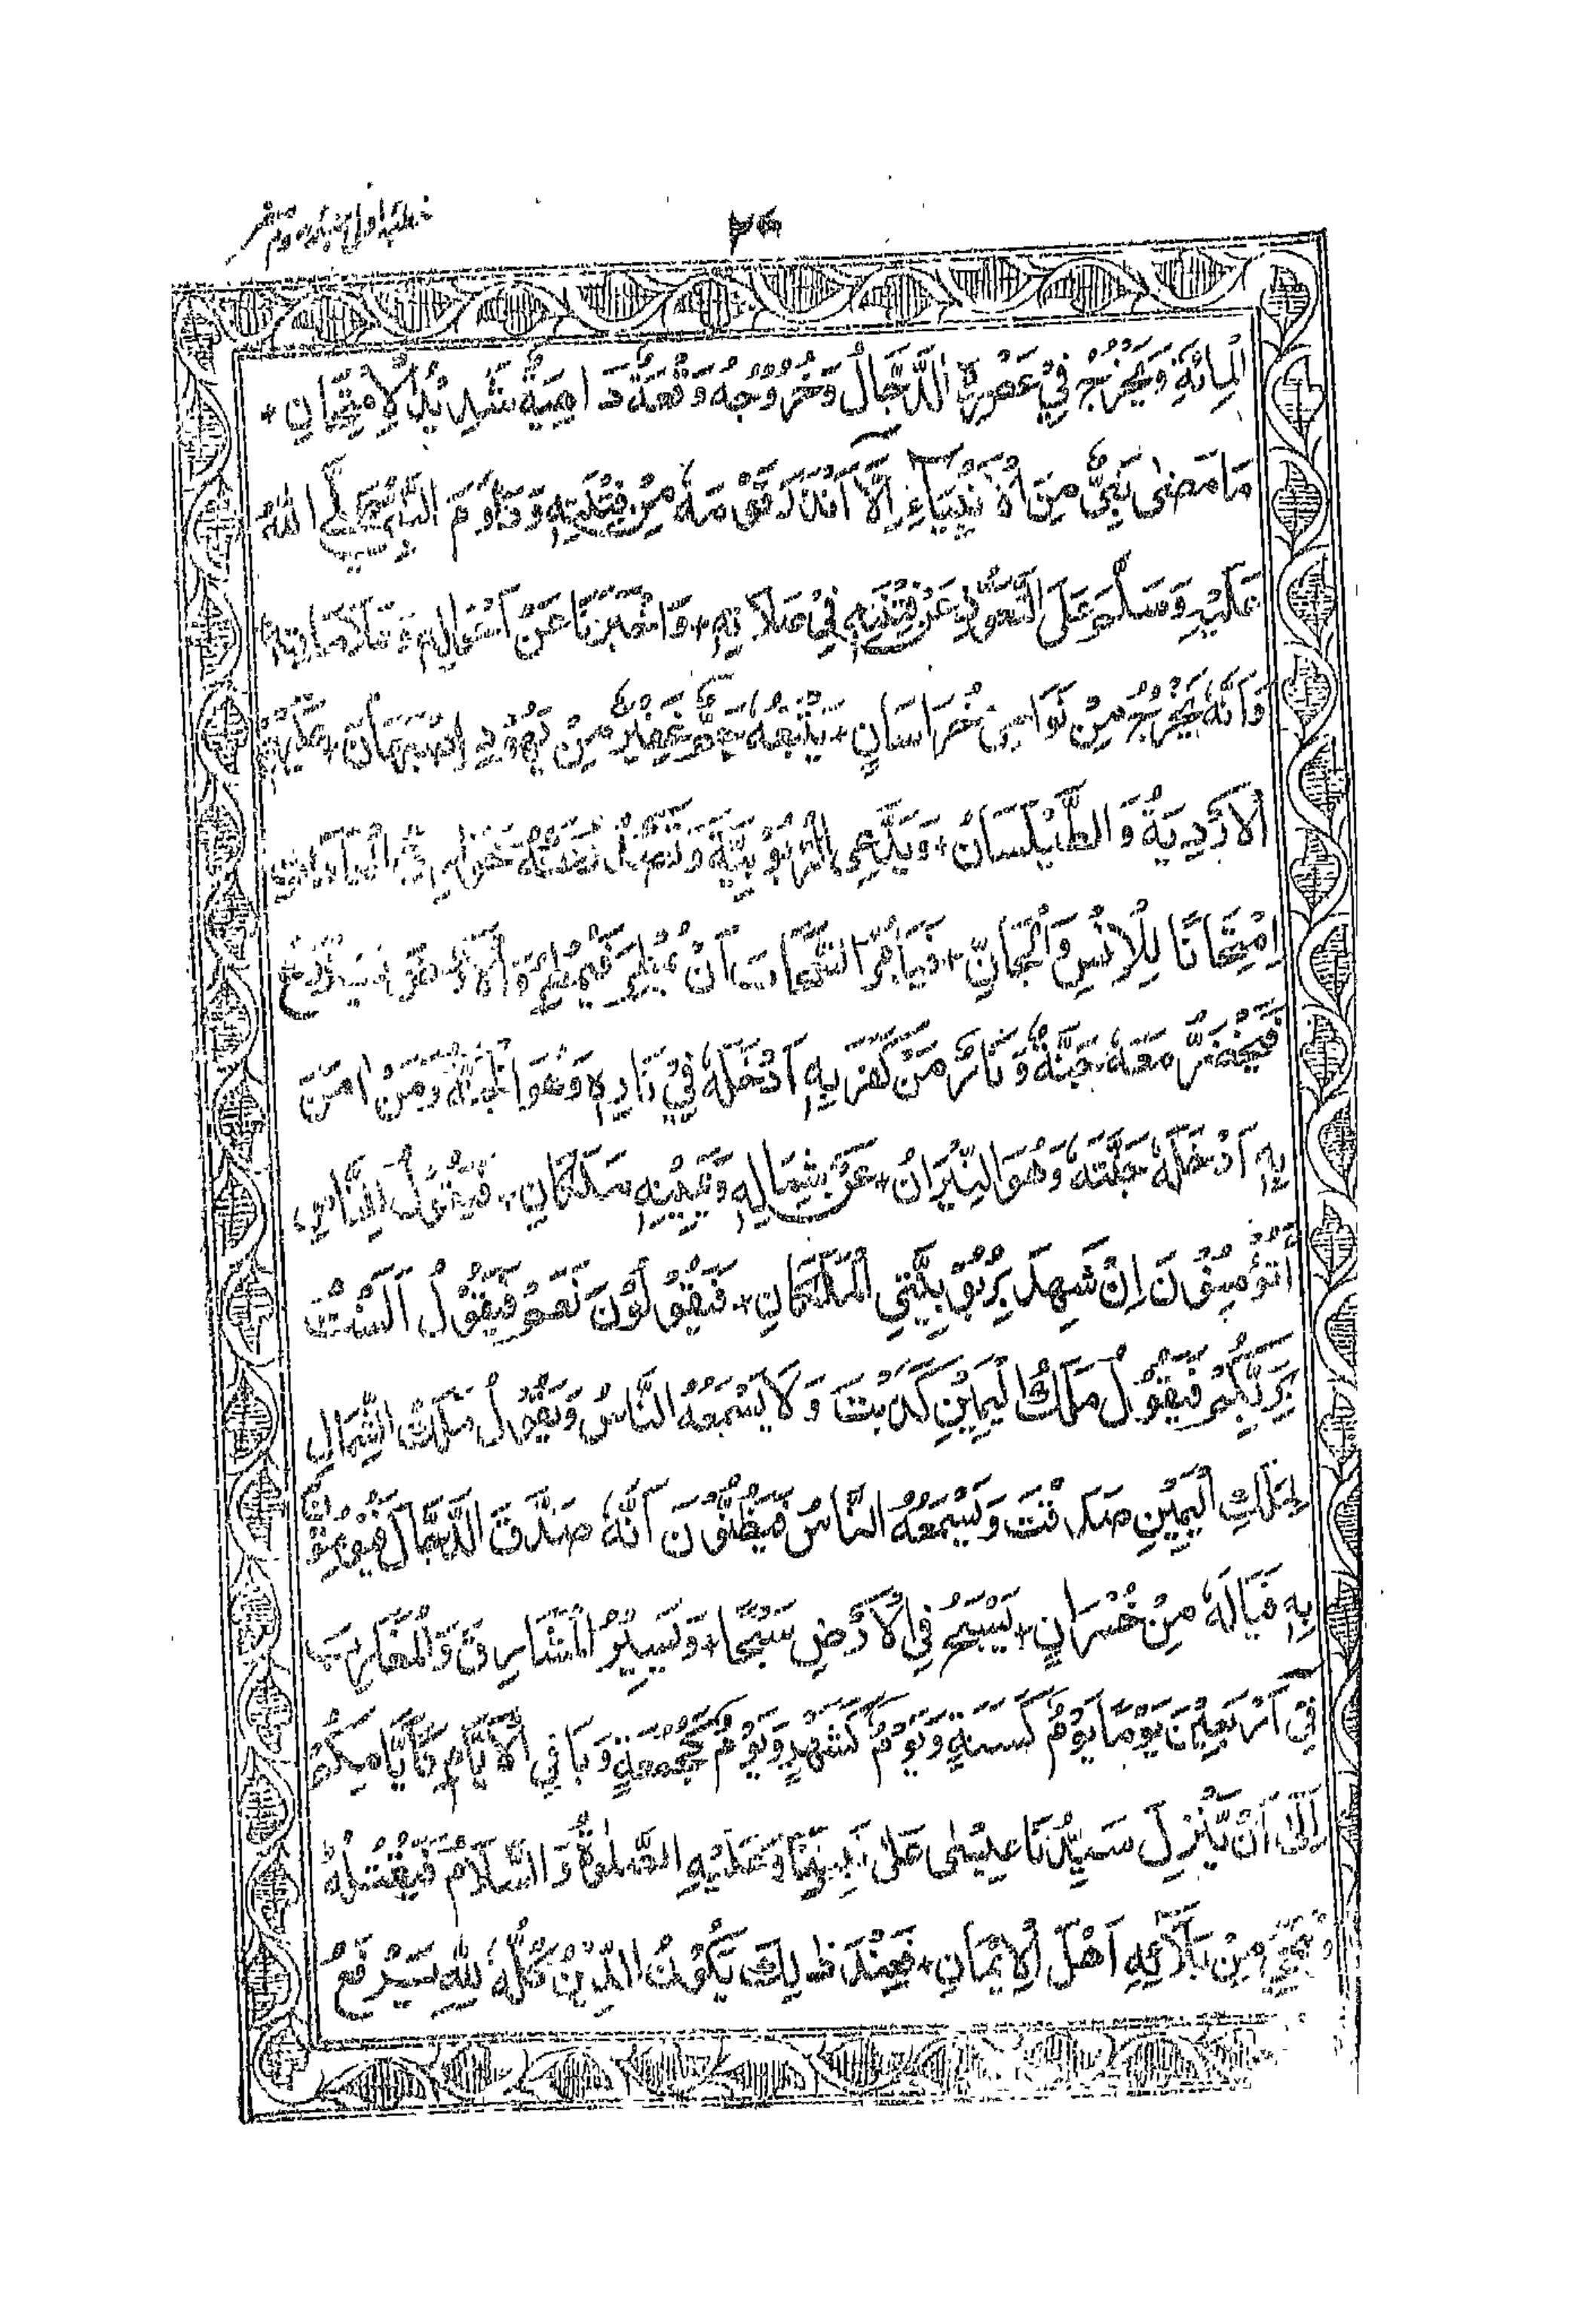 ۲۶
الْمِائَةِ وَيَخْرُجُ فِيْ عَصْرِهِ الدَّجَّالُ وَخُرُوْجُهُ وَقْعَةٌ دَاهِيَةٌ شَدِيْدُ الْاِمْتِحَانِ +
مَا مَضٰى نَبِيٌّ مِنَ الْاَنْبِيَاءِ اِلَّا اَنْذَرَ قَوْمَهٗ مِنْ فِتْنَتِهٖ وَدَاوَمَ النَّبِيُّ صَلَّى اللّٰهُ
عَلَيْهِ وَسَلَّمَ عَلَى التَّعَوُّذِ عَنْ فِتْنَتِهٖ فِيْ صَلَاتِهٖ + وَاَخْبَرَنَا عَنْ اَحْوَالِهٖ وَعَلَامَاتِهٖ
وَاَنَّهٗ يَخْرُجُ مِنْ نَوَاحِيْ خُرَاسَانٍ + يَتْبَعُهٗ جَمٌّ غَفِيْرٌ مِنْ يَهُوْدِ اِصْبَهَانَ + عَلَيْهِمُ
الْاَرْدِيَةُ وَالطَّيْلَسَانُ + وَيَدَّعِي الرُّبُوْبِيَّةَ وَتَصْدُرُ مِنْهُ خَوَارِقُ الْعَادَاتِ
اِمْتِحَانًا لِلْاِنْسِ وَالْجَانِّ + فَيَأْمُرُ السَّمَاءَ اَنْ تُمْطِرَ فَتُمْطِرُ
فَيُحْضَرُ مَعَهٗ جَنَّةٌ وَنَارٌ مَنْ كَفَرَ بِهٖ اَدْخَلَهٗ فِيْ نَارِهٖ وَهُوَ الْجَنَّةُ وَمَنْ اٰمَنَ
بِهٖ اَدْخَلَهٗ جَنَّتَهٗ وَهُوَ النِّيْرَانُ + عَنْ شِمَالِهٖ وَيَمِيْنِهٖ مَلَكَانِ + فَيَقُوْلُ لِلنَّاسِ
اَتُؤْمِنُوْنَ اِنْ شَهِدَ بِرُبُوْبِيَّتِي الْمَلَكَانِ + فَيَقُوْلُوْنَ نَعَمْ فَيَقُوْلُ اَلَسْتُ
بِرَبِّكُمْ فَيَقُوْلُ مَلَكُ الْيَمِيْنِ كَذَبْتَ وَلَا يَسْمَعُهُ النَّاسُ وَيَقُوْلُ مَلَكُ الشِّمَالِ
لِمَلَكِ الْيَمِيْنِ صَدَقْتَ وَيَسْمَعُهُ النَّاسُ فَيَظُنُّوْنَ اَنَّهٗ صَدَّقَ الدَّجَّالَ فَيُؤْمِنُوْنَ
بِهٖ فَيَالَهٗ مِنْ خُسْرَانٍ + يَسْبَحُ فِي الْاَرْضِ سَبْحًا + وَيَسِيْرُ الْمَشَارِقَ وَالْمَغَارِبَ
فِيْ اَرْبَعِيْنَ يَوْمًا يَوْمٌ كَسَنَةٍ وَيَوْمٌ كَشَهْرٍ وَيَوْمٌ كَجُمُعَةٍ وَبَاقِي الْاَيَّامِ كَاَيَّامِكُمْ
اِلٰى اَنْ يَّنْزِلَ سَيِّدُنَا عِيْسٰى عَلٰى نَبِيِّنَا وَعَلَيْهِ الصَّلٰوةُ وَالسَّلَامُ فَيَقْتُلُهٗ
مِنْ بَلَائِهٖ اَهْلَ الْاِيْمَانِ + فَعِنْدَ ذٰلِكَ يَكُوْنُ الدِّيْنُ كُلُّهٗ لِلّٰهِ